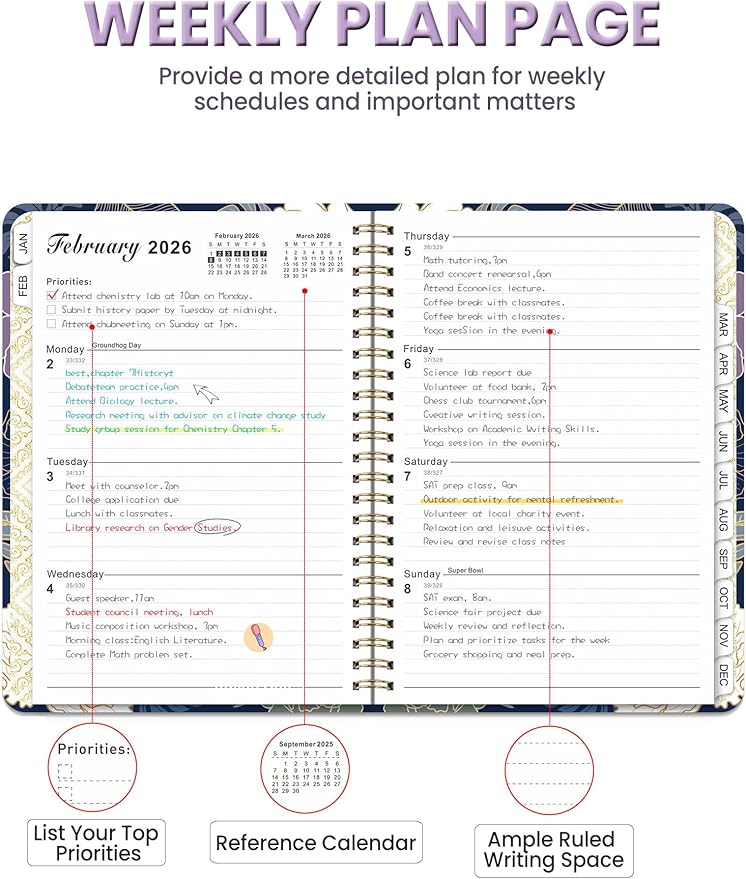 WEEKLY PLAN PAGE
Provide a more detailed plan for weekly
schedules and important matters
JAN
FEB
February 2026
February 2026
S M T W T F S
1 2 3 4 5 6 7
8 9 10 11 12 13 14
15 16 17 18 19 20 21
22 23 24 25 26 27 28
March 2026
S M T W T F S
1 2 3 4 5 6 7
8 9 10 11 12 13 14
15 16 17 18 19 20 21
22 23 24 25 26 27 28
29 30 31
Priorities:
Attend chemistry lab at 10am on Monday.
Submit history paper by Tuesday at midnight.
Attend chubneeting on Sunday at 1pm.
Monday
Groundhog Day
2
33/332
best,chapter 7Historyt
Debateteam practice,4pm
Attend Biology lecture.
Research neeting with advisor on climate change study
Study grbup session for Chemistry Chapter 5.
Tuesday
3
34/331
Meet with counselor,2pm
College application due
Lunch with classnates.
Library research on Gender Studies.
Wednesday
4
35/330
Guest speaker,11am
Student council neeting, lunch
Music conposition workshop, 3pm
Morning class:English Literature.
Conplete Math problem set.
Thursday
5
36/329
Math tutoring,7pm
Band concert renearsal,6pm
Attend Economics lecture.
Coffee break with classmates.
Coffee break with classmates.
Yoga sesSion in the evening.
Friday
6
37/328
Science lab report due
Volunteer at food bank, 2pm
Chess club tournament,6pm
Cveative writing session.
Workshop on Academic Writing Skills.
Yoga session in the evening.
Saturday
7
38/327
SAT prep class, 9am
Outdoor activity for mental refreshment.
Volunteer at local charity event.
Relaxation and leisuve activities.
Review and revise class notes
Sunday
Super Bowl
8
39/326
SAT exam, 8am.
Science fair project due
Weekly review and reflection.
Plan and prioritize tasks for the week
Grocery shopping and neal prep.
MAR
APR
MAY
JUN
JUL
AUG
SEP
OCT
NOV
DEC
Priorities:
List Your Top
Priorities
September 2025
S M T W T F S
1 2 3 4 5 6
7 8 9 10 11 12 13
14 15 16 17 18 19 20
21 22 23 24 25 26 27
28 29 30
Reference Calendar
Ample Ruled
Writing Space